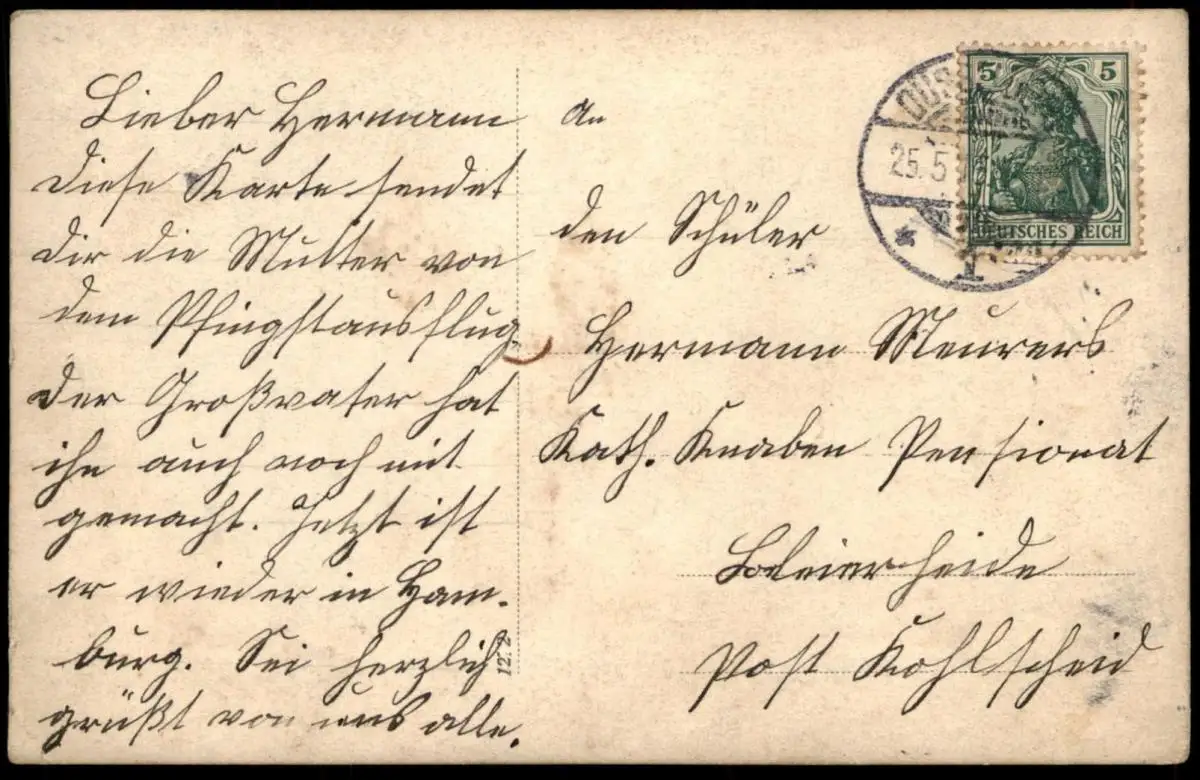 Lieber Hermann
diese Karte sendet
dir die Mutter von
dem Pfingstausflug.
der Großvater hat
ihn auch noch mit
gemacht. Jetzt ist
er wieder in Ham-
burg. Sei herzlich
grüßt von uns alle.
1272
An
den Schüler
Hermann Meurers
Kath. Knaben Pensionat
Post Kohlscheid
5 5
DEUTSCHES REICH
25.5
1